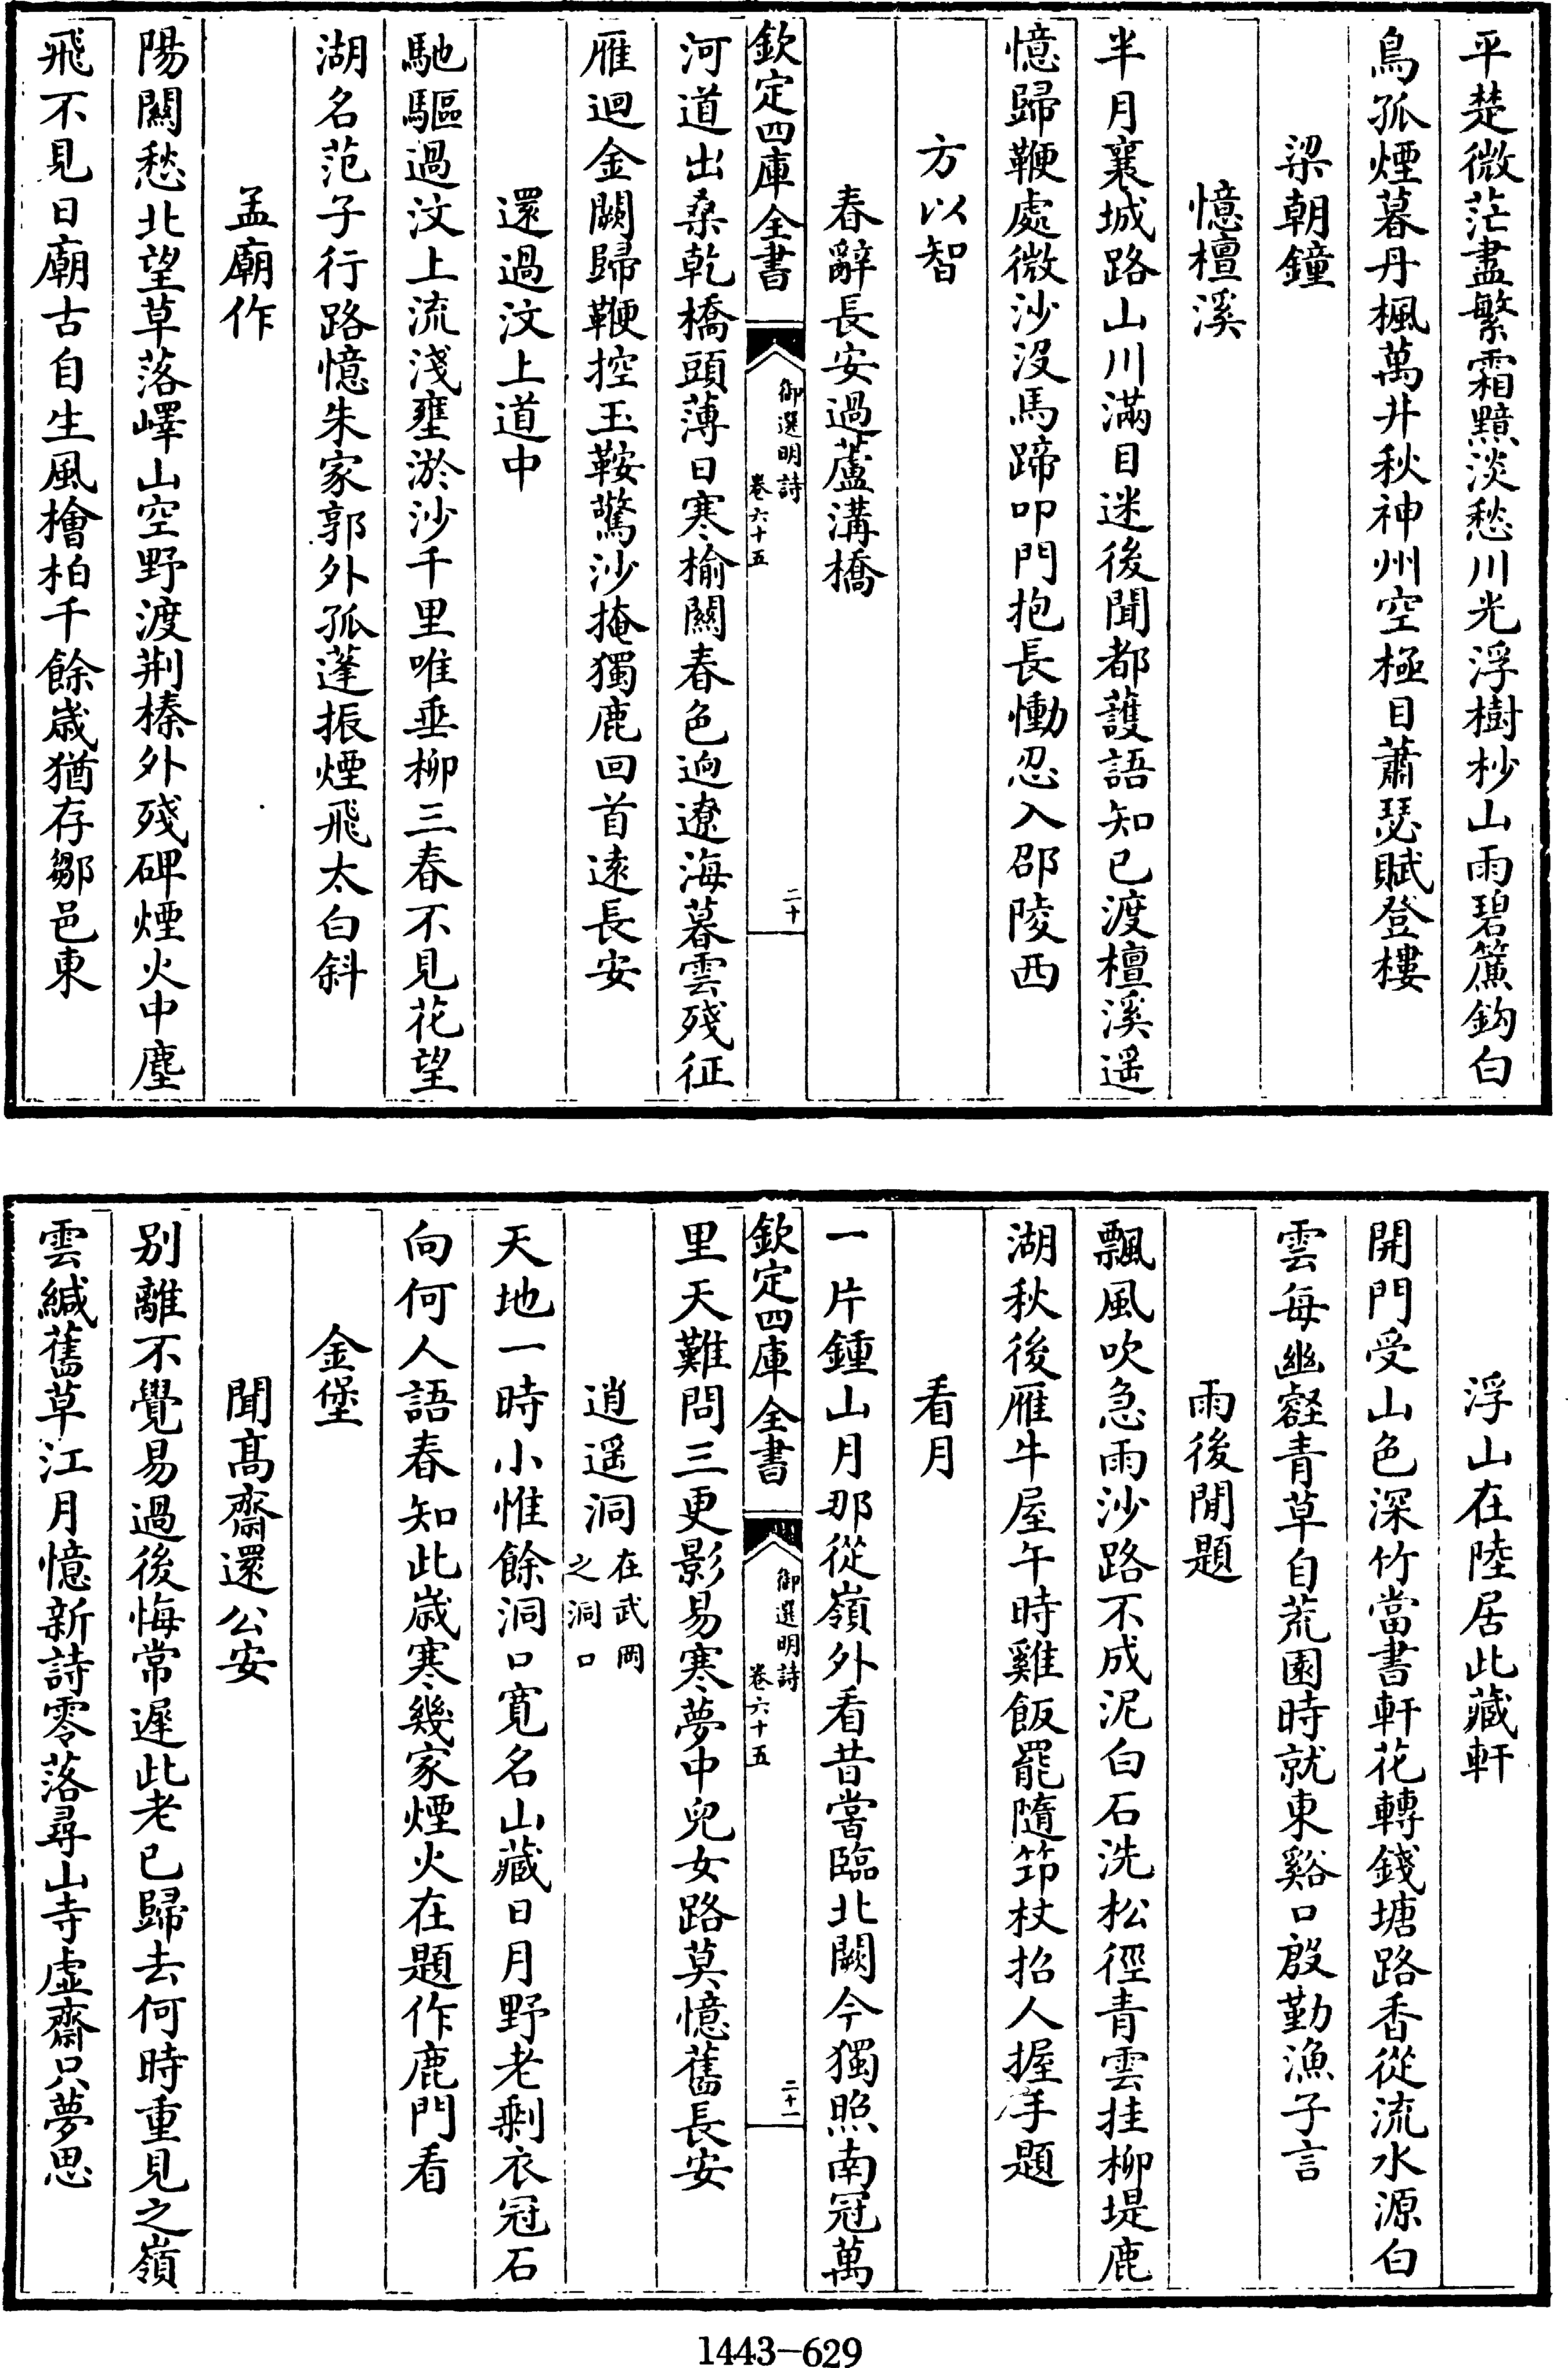 平楚微茫盡繁霜黯淡愁川光浮樹杪山雨碧簾鈎白
鳥孤煙暮丹楓萬井秋神州空極目蕭瑟賦登樓
梁朝鐘
憶檀溪
半月襄城路山川滿目迷後聞都護語知已渡檀溪遥
憶歸鞭處微沙沒馬蹄叩門抱長慟忍入邵陵西
方以智
春辭長安過蘆溝橋
欽定四庫全書
御選明詩
卷六十五
二十
河道出桑乾橋頭薄日寒榆關春色逈遼海暮雲殘征
雁迴金闕歸鞭控玉鞍驚沙掩獨鹿回首遠長安
還過汶上道中
馳驅過汶上流淺壅淤沙千里唯垂柳三春不見花望
湖名范子行路憶朱家郭外孤蓬振煙飛太白斜
孟廟作
陽關愁北望草落嶧山空野渡荆榛外殘碑煙火中塵
飛不見日廟古自生風檜柏千餘歲猶存鄒邑東
浮山在陸居此藏軒
開門受山色深竹當書軒花轉錢塘路香從流水源白
雲每幽壑青草自荒園時就東谿口殷勤漁子言
雨後閒題
飄風吹急雨沙路不成泥白石洗松徑青雲挂柳堤鹿
湖秋後雁牛屋午時雞飯罷隨筇杖招人握手題
看月
一片鍾山月那從嶺外看昔嘗臨北闕今獨照南冠萬
欽定四庫全書
御選明詩
卷六十五
二十一
里天難問三更影易寒夢中兒女路莫憶舊長安
逍遥洞在武岡之洞口
天地一時小惟餘洞口寬名山藏日月野老剩衣冠石
向何人語春知此歲寒幾家煙火在題作鹿門看
金堡
聞髙齋還公安
别離不覺易過後悔常遲此老已歸去何時重見之嶺
雲緘舊草江月憶新詩零落尋山寺虛齋只夢思
1443-629